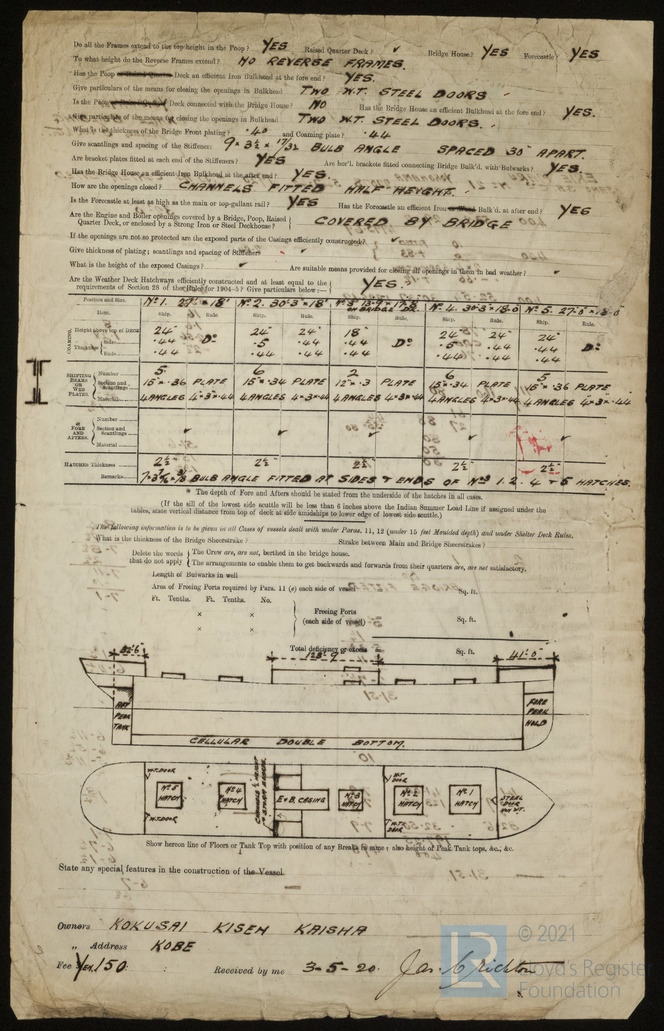 Do all the Frames extend to the top height in the Poop? YES Raised Quarter Deck? ✓ Bridge House? YES Forecastle? YES
To what height do the Reverse Frames extend? NO REVERSE FRAMES.
Has the Poop or Raised Quarter Deck an efficient Iron Bulkhead at the fore end? YES.
Give particulars of the means for closing the openings in Bulkhead TWO W.T. STEEL DOORS
Is the Poop or Raised Quarter Deck connected with the Bridge House? NO Has the Bridge House an efficient Bulkhead at the fore end? YES.
Give particulars of the means for closing the openings in Bulkhead TWO W.T. STEEL DOORS.
What is the thickness of the Bridge Front plating? .40 and Coaming plate? .44
Give scantlings and spacing of the Stiffeners 9 × 3½ × 17/32 BULB ANGLE SPACED 30" APART.
Are bracket plates fitted at each end of the Stiffeners? YES Are hor'l. brackets fitted connecting Bridge Bulk'd. with Bulwarks? YES.
Has the Bridge House an efficient Iron Bulkhead at the after end? YES.
How are the openings closed? CHANNELS FITTED HALF HEIGHT.
Is the Forecastle at least as high as the main or top-gallant rail? YES Has the Forecastle an efficient Iron or Wood Bulk'd. at after end? YES
Are the Engine and Boiler openings covered by a Bridge, Poop, Raised Quarter Deck, or enclosed by a Strong Iron or Steel Deckhouse? COVERED BY BRIDGE
If the openings are not so protected are the exposed parts of the Casings efficiently constructed? ✓
Give thickness of plating; scantlings and spacing of Stiffeners ✓
What is the height of the exposed Casings? ✓ Are suitable means provided for closing all openings in them in bad weather?
Are the Weather Deck Hatchways efficiently constructed and at least equal to the requirements of Section 28 of the Rules for 1904-5? Give particulars below:— YES.
Position and Size. No 1. 27'-0 × 18' No 2. 30'-3 × 18' ON BRIDGE DK. No 4. 30'-3 × 18'-0 No 5. 27'-0 × 18'-0
Item. Ship. Rule. Ship. Rule. Ship. Rule. Ship. Rule. Ship. Rule.
COAMING. Height above top of Deck 24" Do 24" 24" 18" Do 24" 24" 24" Do
Thickness Sides .44 .5 .44 .44 .5 .44 .44
Ends .44 .44 .44 .44 .44 .44
SHIFTING BEAMS OR WEB PLATES. Number 5 6 2 6 5
Section and Scantlings 15" × .36 PLATE 15" × .34 PLATE 12" × .3 PLATE 15" × .34 PLATE 15" × .36 PLATE
Material 4 ANGLES 4 × 3 × .44 4 ANGLES 4 × 3 × .44 4 ANGLES 4 × 3 × .44 4 ANGLES 4 × 3 × .44 4 ANGLES 4 × 3 × .44
FORE AND AFTERS. Number
Section and Scantlings ✓ ✓ ✓ ✓ ✓
Material
HATCHES Thickness 2½" 2½" 2½" 2½" 2½"
Remarks BULB ANGLE FITTED AT SIDES & ENDS OF Nos 1. 2. 4 & 5 HATCHES.
* The depth of Fore and Afters should be stated from the underside of the hatches in all cases.
(If the sill of the lowest side scuttle will be less than 6 inches above the Indian Summer Load Line if assigned under the
tables, state vertical distance from top of deck at side amidships to lower edge of lowest side scuttle.)
The following information is to be given in all Cases of vessels dealt with under Paras. 11, 12 (under 15 feet Moulded depth) and under Shelter Deck Rules.
What is the thickness of the Bridge Sheerstrake? Strake between Main and Bridge Sheerstrakes?
Delete the words that do not apply { The Crew are, are not, berthed in the bridge house.
The arrangements to enable them to get backwards and forwards from their quarters are, are not satisfactory.
Length of Bulwarks in well
Area of Freeing Ports required by Para. 11 (e) each side of vessel Sq. ft.
Ft. Tenths. Ft. Tenths. No.
× × } Freeing Ports (each side of vessel) Sq. ft.
× ×
Total deficiency or excess Sq. ft.
128'-9" 41'-0"
AFT PEAK TANK
FORE PEAK HOLD
CELLULAR DOUBLE BOTTOM.
W.T. DOOR No 5 HATCH No 4 HATCH E & B. CASING No 3 HATCH W.T DOOR No 2 HATCH No 1 HATCH STEEL DOOR
W.T. DOOR W.T. DOOR
Show hereon line of Floors or Tank Top with position of any Breaks in same; also height of Peak Tank tops, &c., &c.
State any special features in the construction of the Vessel.
Owners KOKUSAI KISEN KAISHA
„ Address KOBE
Fee Yen 150: : Received by me 3-5-20. Jas. Crichton
LR © 2021
Lloyd's Register
Foundation